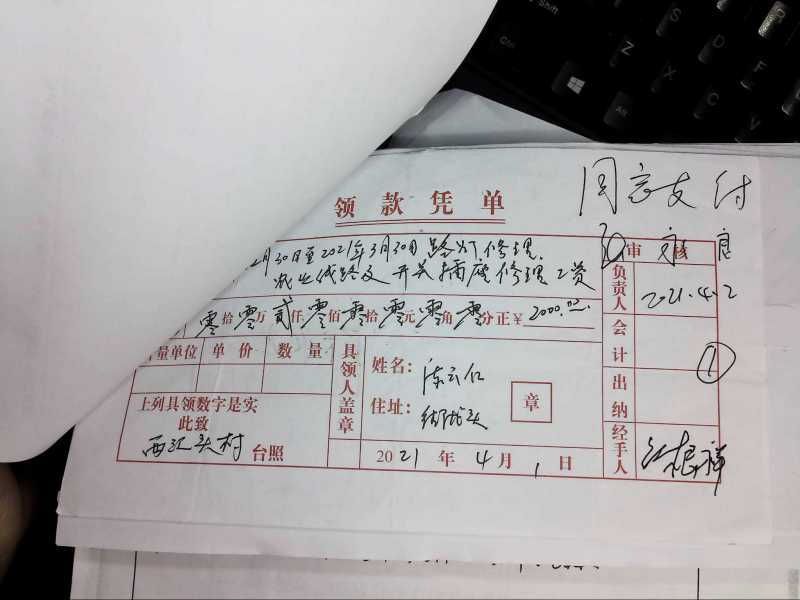 同意支付
领款凭单
月30日至2021年3月30日路灯修理
线路及开关插座修理工资
审核
零拾零万贰仟零佰零拾零元零角零分正¥2000.00
负责人
2021.4.2
量单位 单价 数量
具领人盖章
姓名:
陈云仁
住址:
章
会计
①
出纳
上列具领数字是实
此致
西江头村 台照
2021年4月1日
经手人
江根祥
Shift
Ctrl
Alt
S
D
F
R
Z
X
C
V